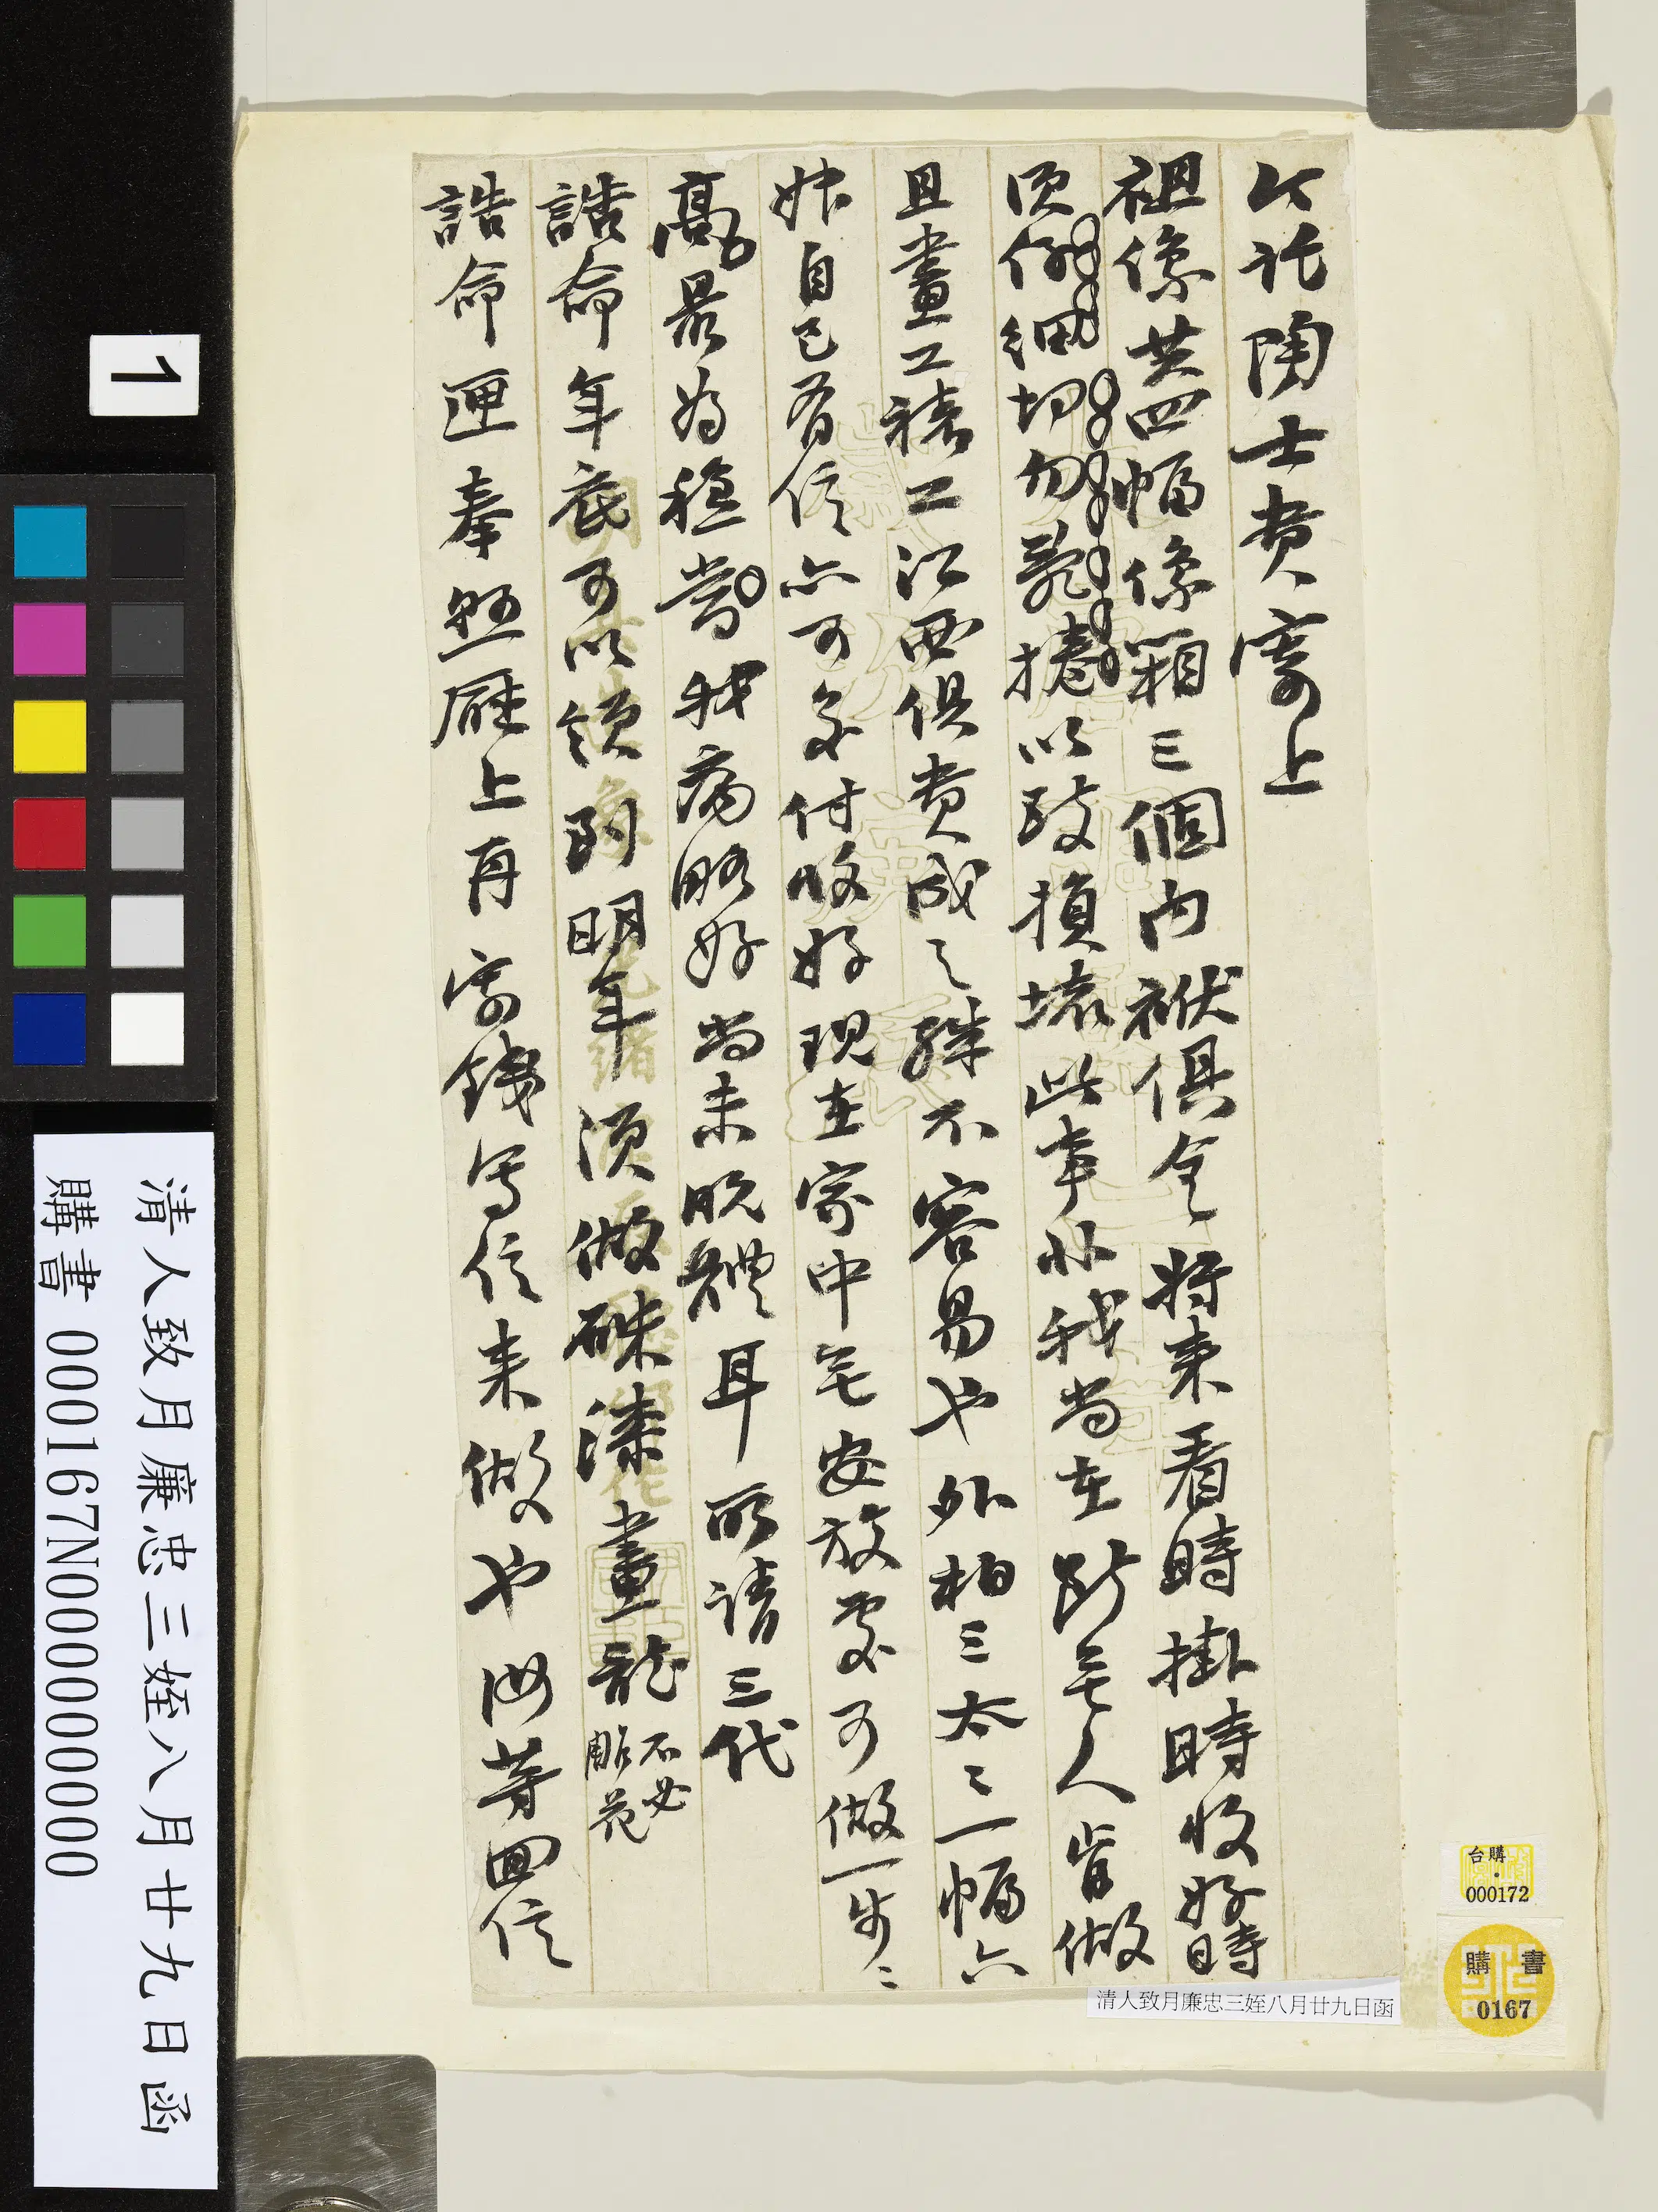 今託陶士贲寄上
祖像共四幅像箱三個內袱俱全將來看時掛時收好時
須仔細切勿亂捲以致損壞此事非我尚在斷無人肯做
且畫工裱工江西俱贲成之殊不容易也外柏三太ミ一幅六
妹自己有信亦可交付收好現在家中無安放處可做一步ミ
高最為穩當我病略好尚未脫體耳所請三代
誥命年底可以領到明年須做硃漆畫龍不必雕花
誥命匣奉懸廳上再寄錢寫信來做也汝等回信
1
清人致月廉忠三姪八月廿九日函
購書 000167N000000000
清人致月廉忠三姪八月廿九日函
台購
000172
購書
0167